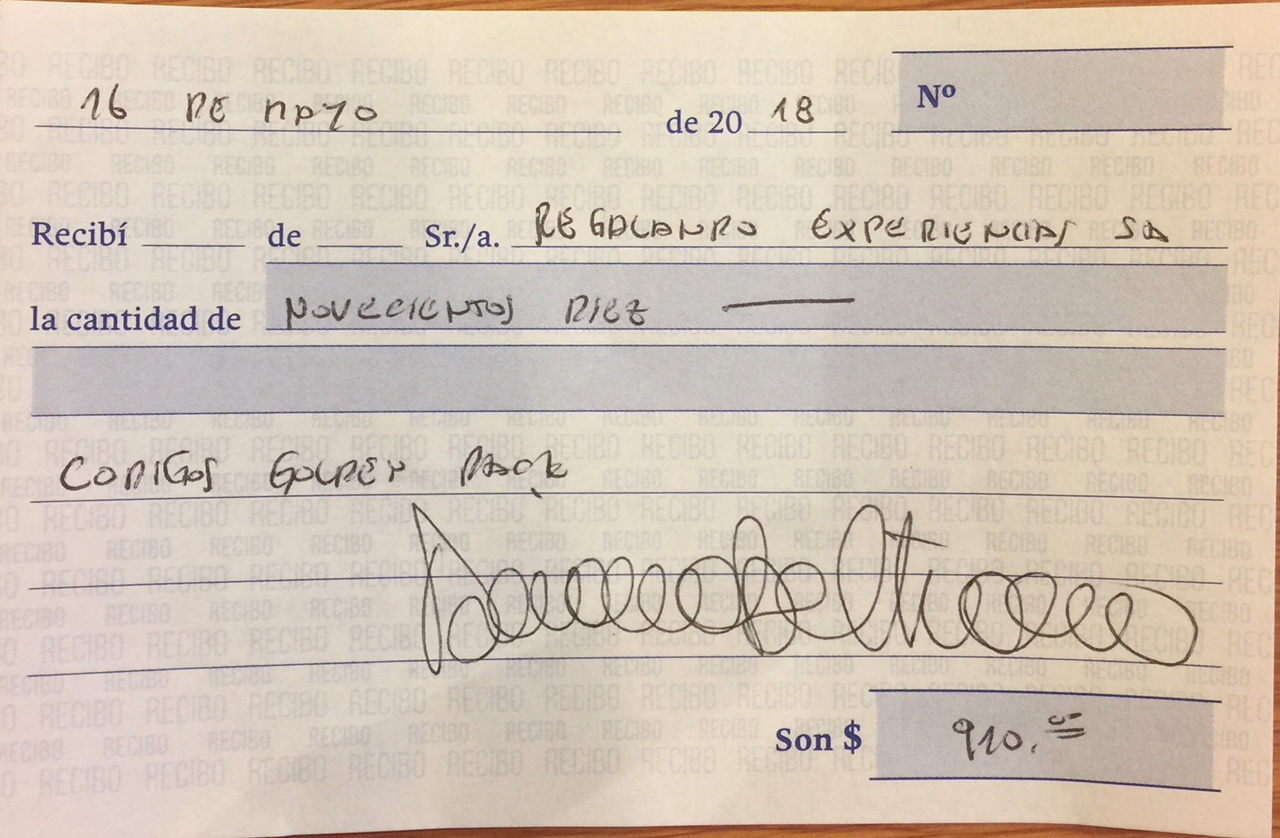 16 DE MAYO de 20 18 Nº
Recibí de Sr./a. REGALANDO EXPERIENCIAS SA
la cantidad de NOVECIENTOS DIEZ
CODIGOS GOLDEN PACK
Son $ 910.=